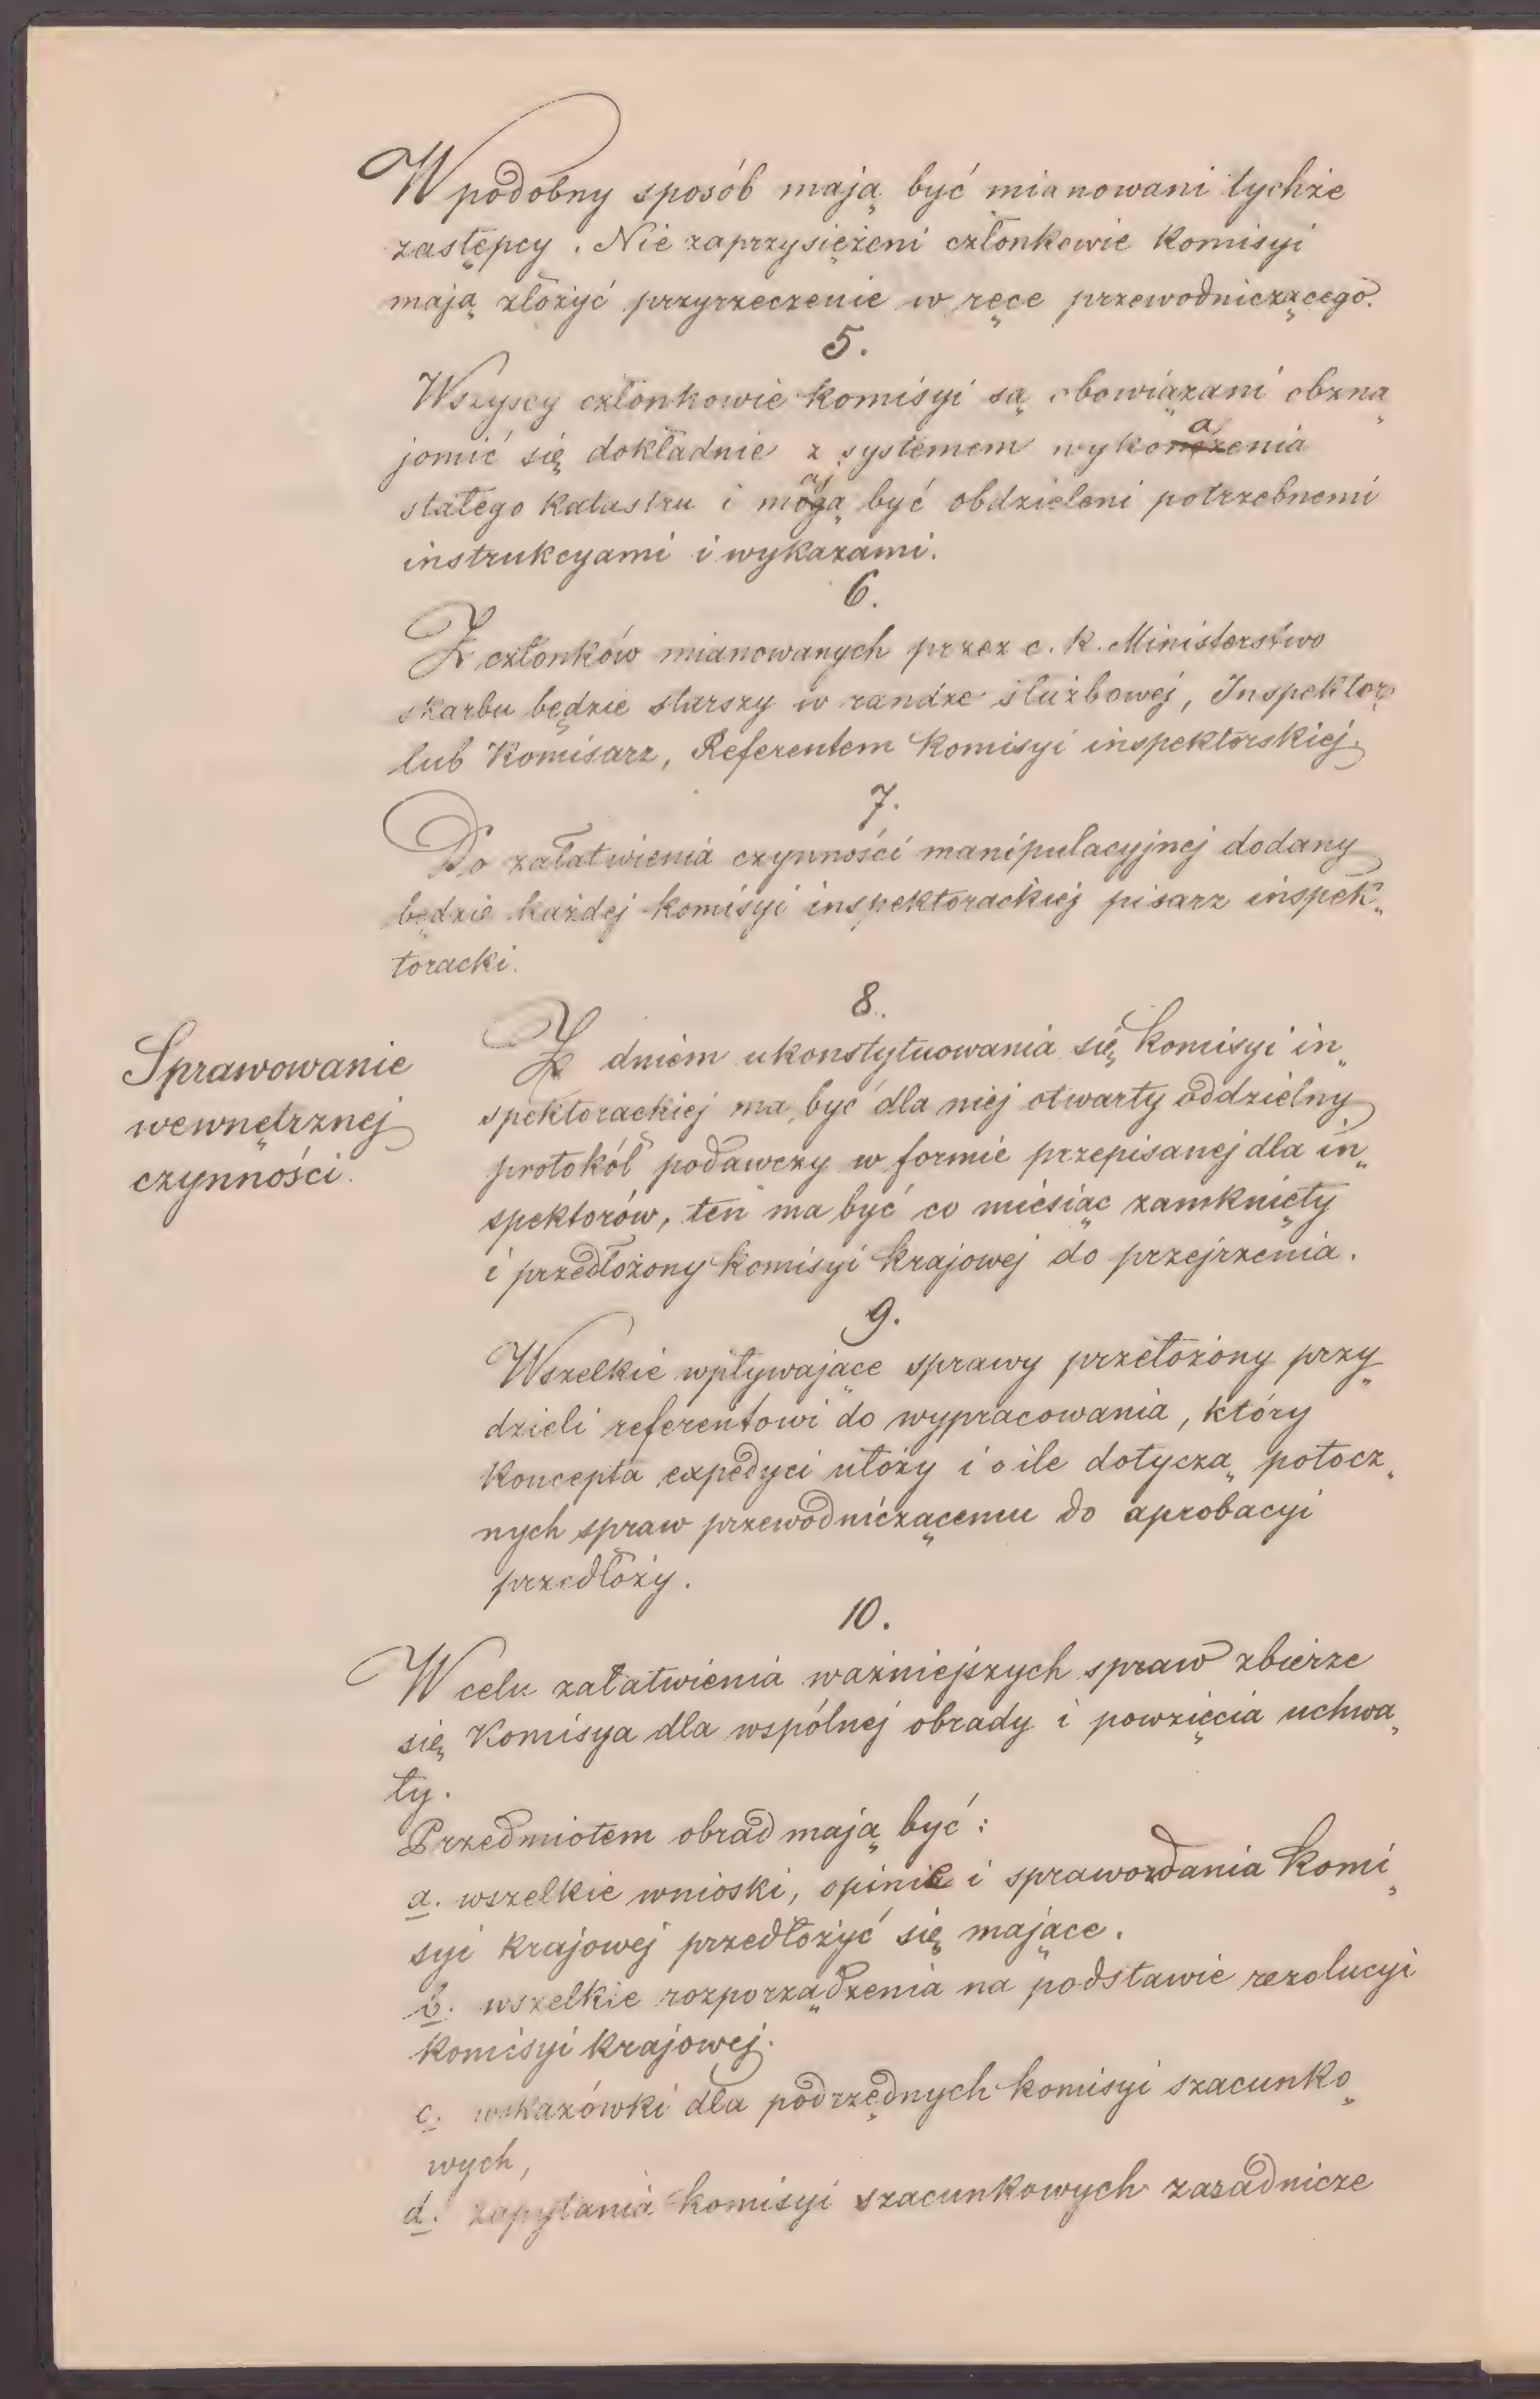 W podobny sposób mają być mianowani tychże
zastępcy. Nie zaprzysiężeni członkowie komisyi
mają złożyć przyrzeczenie w ręce przewodniczącego.
5.
Wszyscy członkowie komisyi są obowiązani obzna„
jomić się dokładnie z systemem wykonania
stałego katastru i mają być obdzieleni potrzebnemi
instrukcyami i wykazami.
6.
Z członków mianowanych przez c. k. Ministerstwo
skarbu będzie starszy w randze służbowej, Inspektor
lub Komisarz, Referentem komisyi inspektorskiej.
7.
Do załatwienia czynności manipulacyjnej dodany
będzie każdej komisyi inspektorackiej pisarz inspek„
toracki.
8.
Sprawowanie
wewnętrznej
czynności.
Z dniem ukonstytuowania się komisyi in„
spektorackiej ma być dla niej otwarty oddzielny
protokół podawczy w formie przepisanej dla in„
spektorów, ten ma być co miesiąc zamknięty
i przedłożony komisyi krajowej do przejrzenia.
9.
Wszelkie wpływające sprawy przełożony przy„
dzieli referentowi do wypracowania, który
koncepta expedyci ułoży i o ile dotyczą potocz„
nych spraw przewodniczącemu do aprobacyi
przedłoży.
10.
W celu załatwienia ważniejszych spraw zbierze
się Komisya dla wspólnej obrady i powzięcia uchwa„
ły.
Przedmiotem obrad mają być:
a. wszelkie wnioski, opinie i sprawozdania komi„
syi krajowej przedłożyć się mające.
b. wszelkie rozporządzenia na podstawie rezolucyi
komisyi krajowej.
c. wskazówki dla podrzędnych komisyi szacunko„
wych,
d. zapytania komisyi szacunkowych zasadnicze